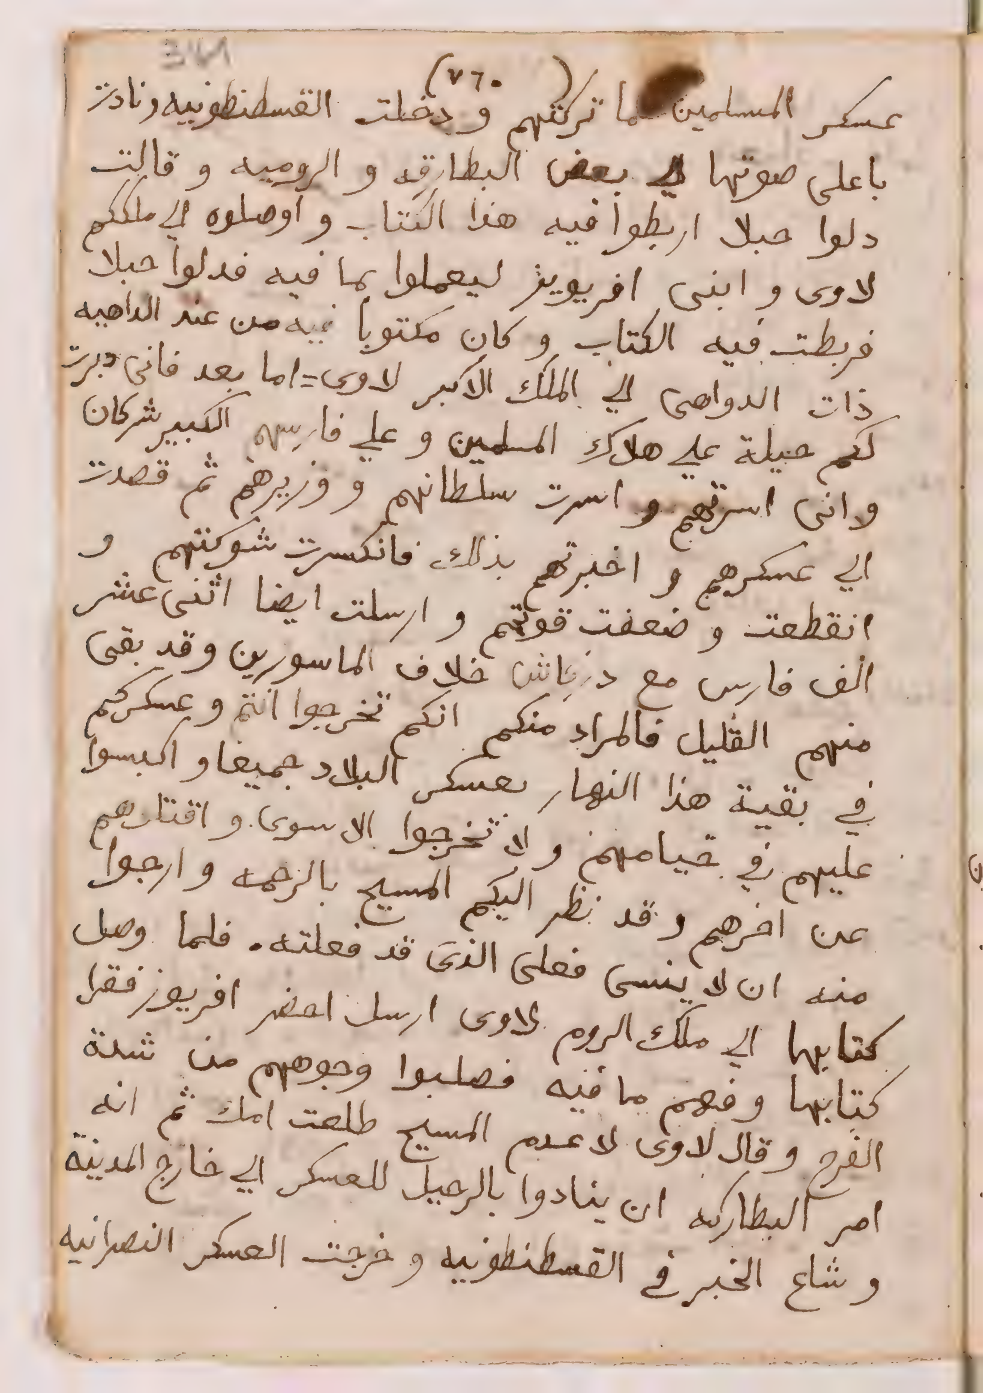 341
(٧٦٠)
عسكر المسلمين ما تركتهم و دخلت القسطنطونيه و نادت
باعلى صوتها الي بعض البطارقه و الروميه و قالت
دلوا حبلا اربطوا فيه هذا الكتاب و اوصلوه الي ملككم
لاوى و ابنى افريويز ليعملوا بما فيه فدلوا حبلا
فربطت فيه الكتاب و كان مكتوبا فيه من عند الداهيه
ذات الدواهى الي الملك الاكبر لاوى = اما بعد فانى دبرت
لكم حيلة علي هلاك المسلمين و علي فارسهم الكبير شركان
و انى اسرتهم و اسرت سلطانهم و وزيرهم ثم قصدت
الي عسكرهم و اخبرتهم بذلك فانكسرت شوكتهم و
انقطعت و ضعفت قوتهم و ارسلت ايضا اثنى عشر
الف فارس مع خلاف الماسورين و قد بقى
منهم القليل فالمراد منكم انكم تخرجوا انتم و عسكركم
في بقية هذا النهار بعسكر البلاد جميعا و اكبسوا
عليهم في خيامهم و لا تخرجوا الا سوى و اقتلوهم
عن اخرهم و قد نظر اليكم المسيح بالرحمه و ارجوا
منه ان لا ينسى فعلى الذى قد فعلته . فلما وصل
كتابها الي ملك الروم لاوى ارسل احضر افريوز فقرا
كتابها و فهم ما فيه فصلبوا وجوههم من شدة
الفرح و قال لاوى لا عدم المسيح طلعت امك ثم انه
امر البطاركه ان ينادوا بالرحيل للعسكر الي خارج المدينة
و شاع الخبر في القسطنطونيه و خرجت العسكر النصرانيه